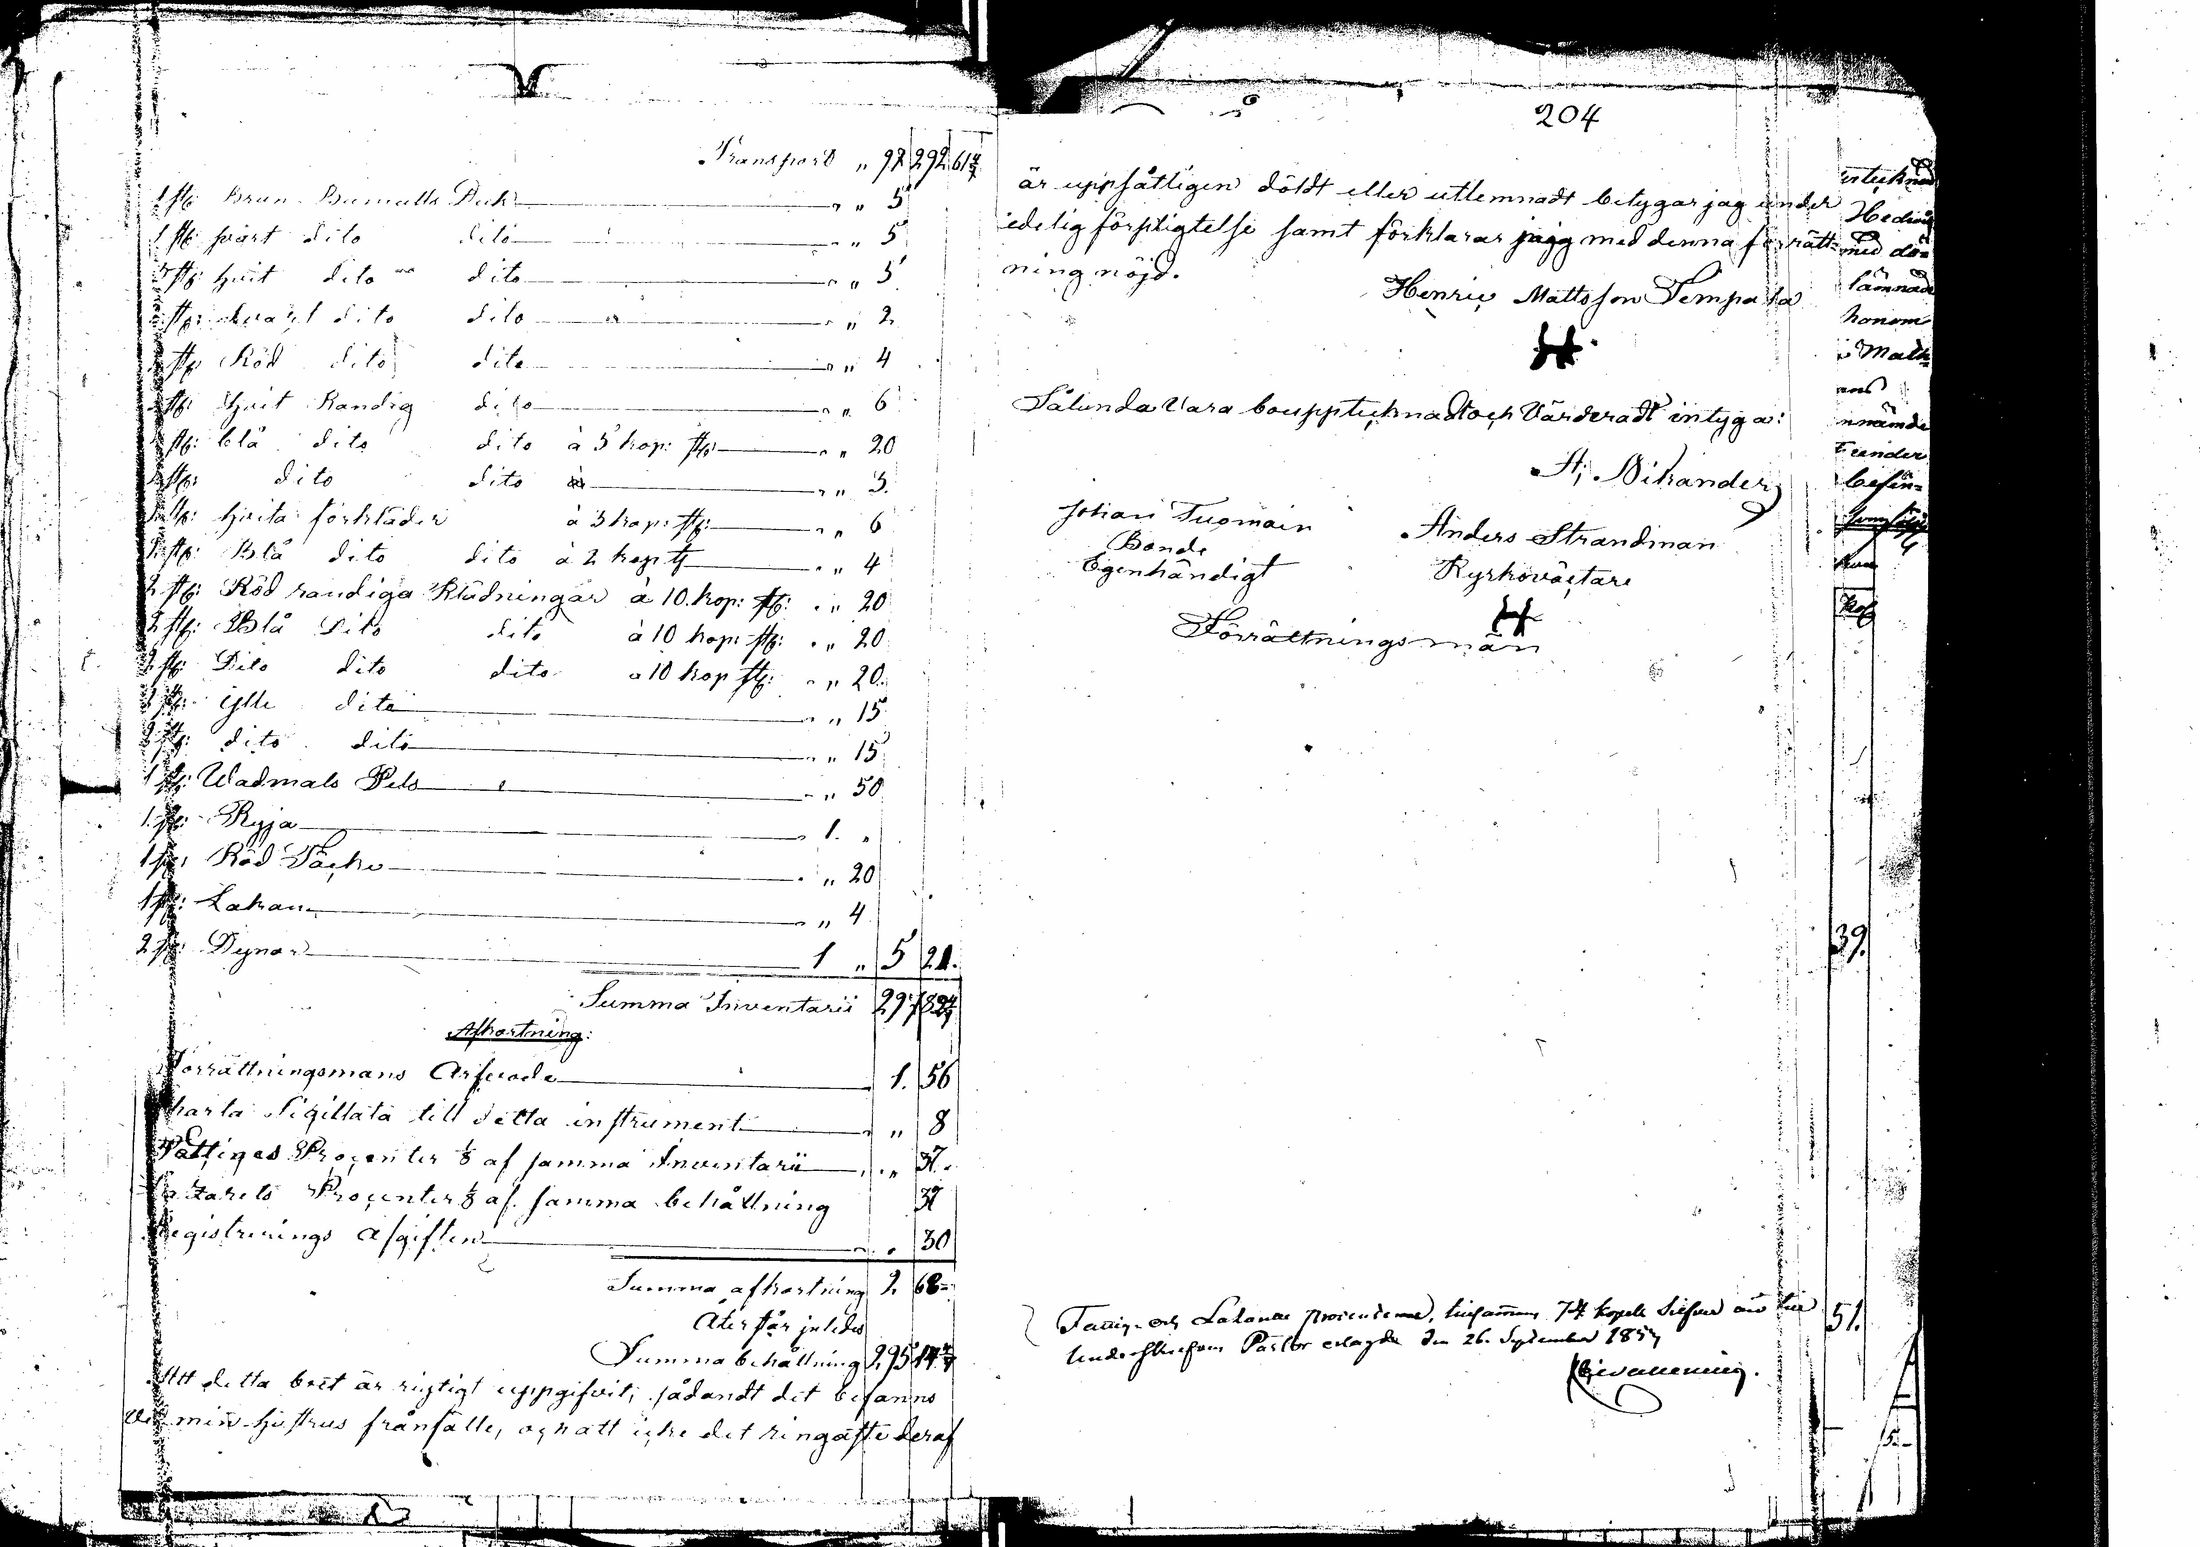 Transport " 97 292 61 4/7
1 st: Brun Bumulls Duk " 5
1 st: svart dito dito " 5
st: hvit dito dito " 5
st: svart dito dito " 2
st: Röd dito dito " 4
st: hvit Randig dito " 6
st: blå dito dito à 5 kop: st: " 20
st: dito dito " 3.
st: hvita förkläder à 3 kop: st: " 6
st: Blå dito dito à 2 kop st " 4
2 st: Röd randiga Klädningar à 10. kop: st: " 20
2 st: Blå Dito dito à 10 kop: st: " 20
2 st: Dito dito dito à 10 kop st: " 20.
st: ylle dito " 15
st: dito dito " 15
1 st: Wadmals Pels " 50
1 st: Ryja 1. "
1 st: Röd Täcke " 20
1 st: Lakan " 4
2 st: Dynor 1 " 5 21.
Summa Inventarii 297 82 4/7
Afkortning:
Förrättningsmans Arfvode 1. 56
Charta Sigillata till detta instrument " 8
Fattiges Procenter 1/8 af samma Inventarii " 37.
Lazarets Procenter 1/8 af samma behållning 37
Registrerings Afgiften 30
Summa afkortning 2 68
Återstår således
Summa behållning 295 14 4/7
Att detta boet är rigtigt uppgifvit, sådandt det befanns
vid min hustrus frånfälle, och att icke det ringaste deraf
204
är uppsåtligen döldt eller utlemnadt betygar jag under
edelig förpligtelse samt förklarar jagg med denna förrätt-
ning nöjd.
Henric Mattsson Tempala
Sålunda Vara bouppteknadt och Värderadt intyga:
Nikander
Johan Tuomain
Bonde
Egenhändigt
Anders Strandman
Kyrkovästare
Förrättningsmän
Fattig- och procenterne, tillsammans 74 kopek Silfver äro till
Undertecknad Pastor erlagde den 26. September 1857
Hedvig
med dö=
lämnade
honom
Math=
nnämde
under
befin=
Kop
39.
51.
5